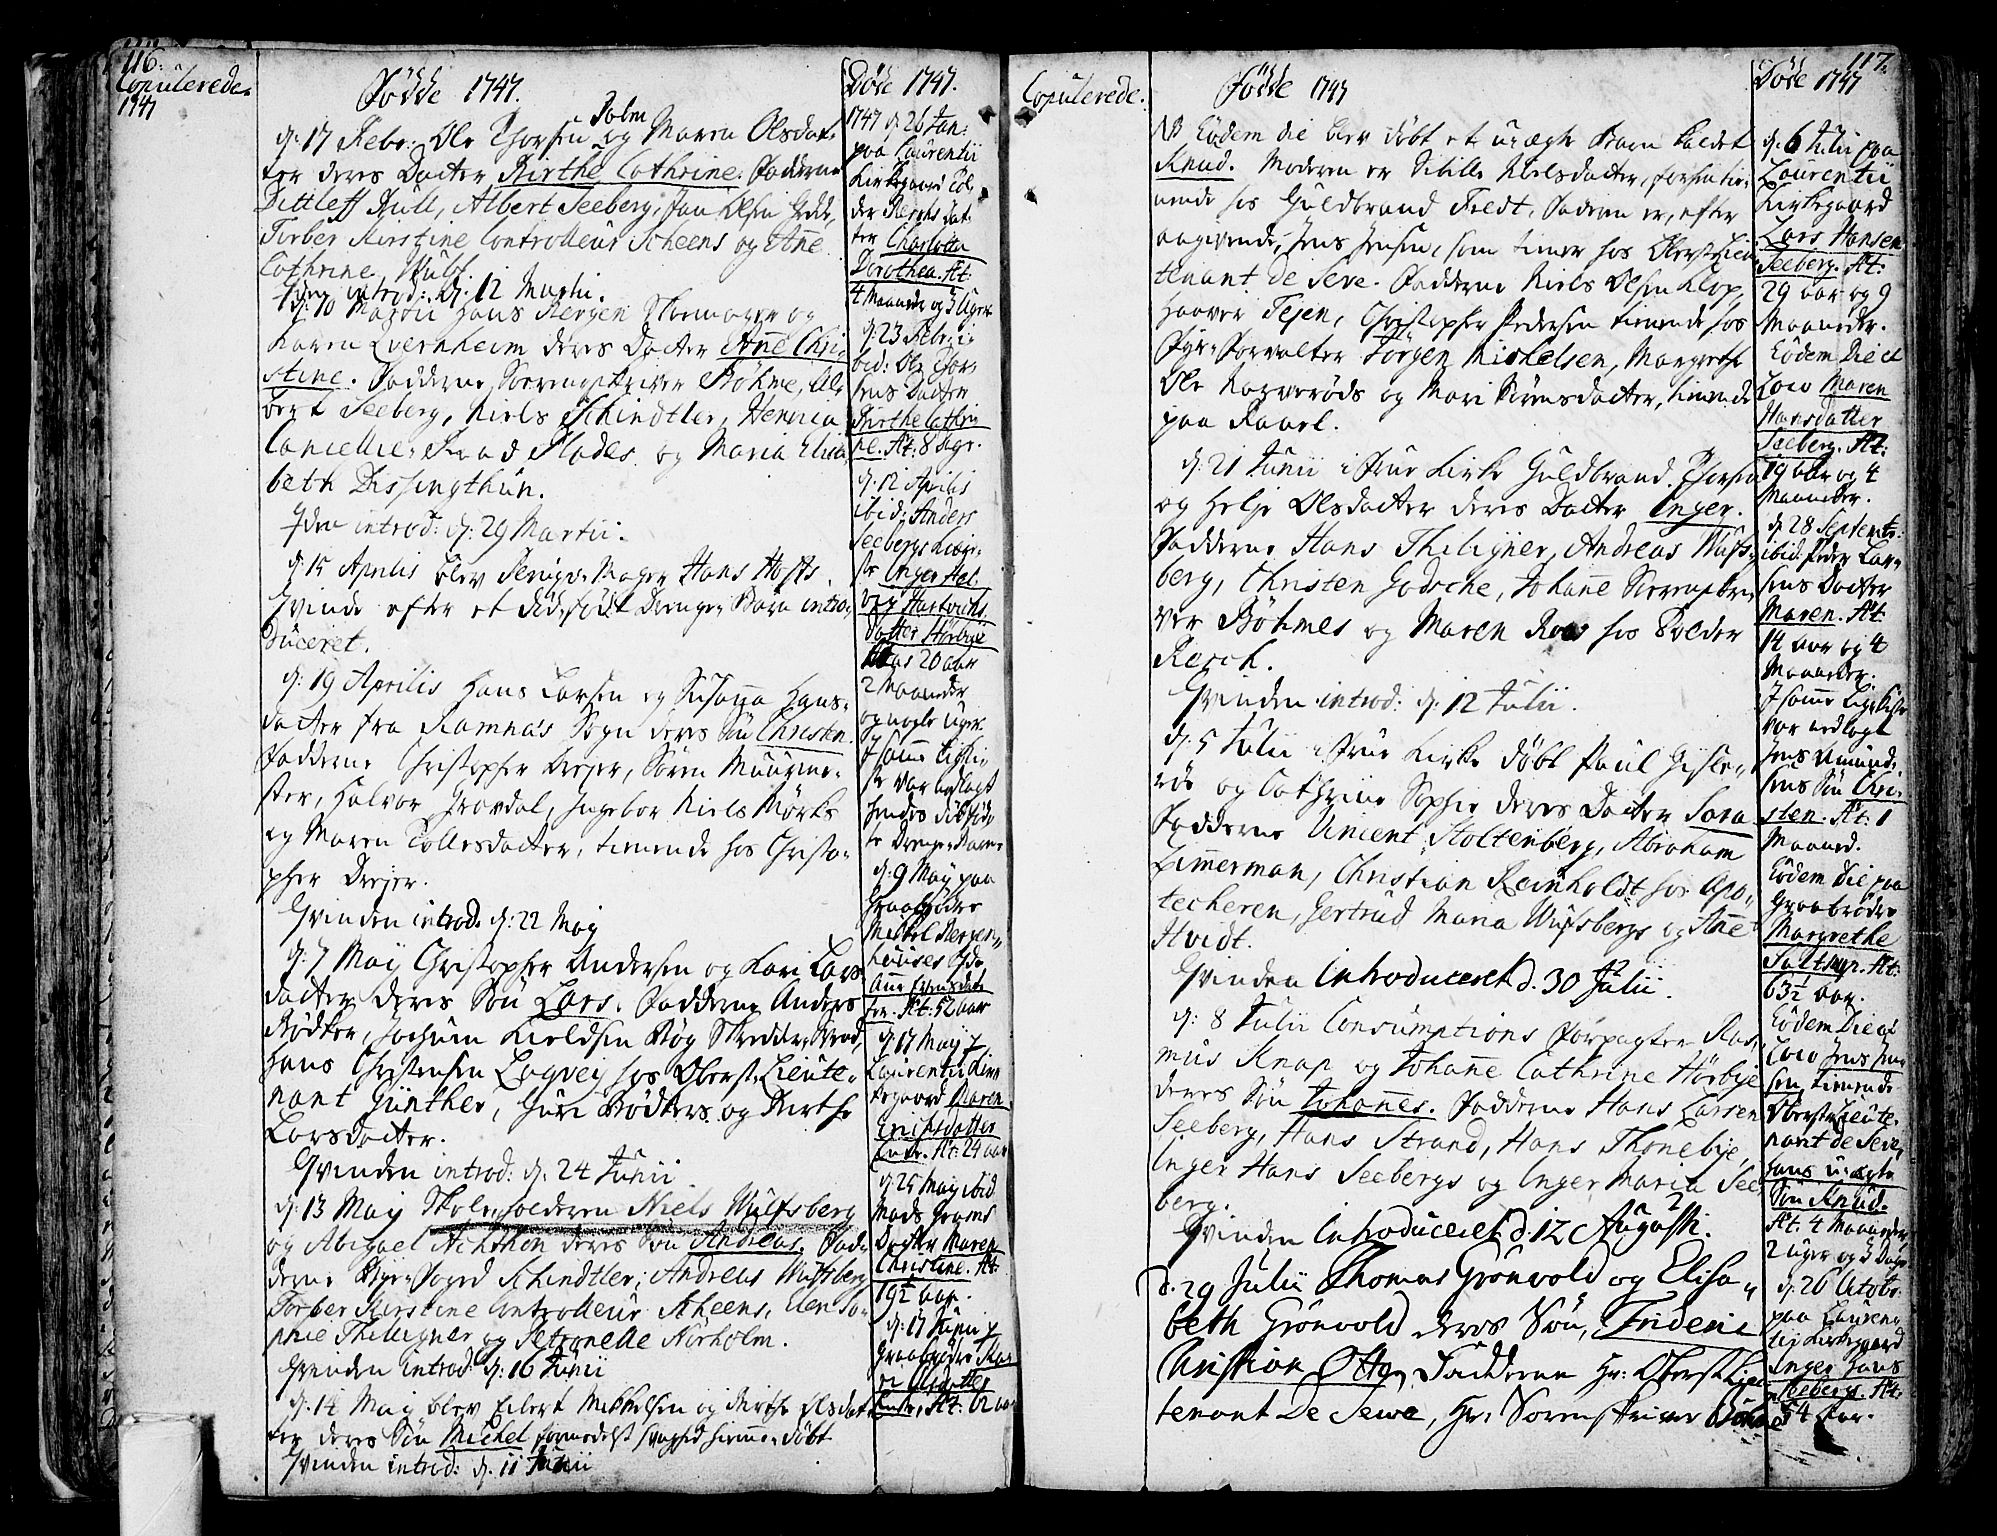 116.
Copulerede
1747
Fødde 1747.
Holm
d: 17 Febr: Ole Thorsen og Maren Olsdat-
ter deres Datter Birthe Cathrine. Fadderne
Dittleff Bull, Albert Seeberg, Jan Olsen
Torber Kirstine Controlleur Scheens og Anne
Cathrine Wulf.
introd: d: 12 Martii.
d: 10 Martii Hans Bergen Skomager og
Karen Qvernheim deres Datter Anne Chri-
stine. Fadderne Sorenskriver Böhme, Al-
bert Seeberg, Niels Schindtler, Henrica
Cancellie-Raad Blades og Maria Elisa-
beth Dissingthun.
introd: d: 29 Martii.
d: 15 Aprilis blev Hans
Qvinde efter et dødfødt Drenge-Barn intro-
duceret.
d: 19 Aprilis Hans Larsen og Susanna Hans-
datter fra Ramnæs Sogn deres Søn Christen.
Fadderne Christopher Dreyer, Søren Muurme-
ster, Halvor Gravdal, Ingebor Niels Mörks
og Maren Tollesdatter, tienende hos Christo-
pher Dreyer.
Qvinden introd. d: 22 May
d: 7 May Christopher Andersen og Kari Lars-
datter deres Søn Lars. Fadderne Anders
Bødker, Jochum Kieldsen Bøg Skredder-Svend,
Hans Christensen Lagvey hos Oberst-Lieute-
nant Günther, Guri Bødkers og Birthe
Larsdatter.
Qvinden introd: d: 24 Junii
d: 13 May Skole-holderen Niels Wulfsberg
og Abigael Achthon deres Søn Andreas. Fad-
derne Bye-Foged Schindtler, Andreas Wulfsberg
Torber Kirstine Controlleur Scheens, Elen So-
phie Thilligner og Petronelle Nörholm.
Qvinden introd: d: 16 Junii
d: 14 May blev Eilert Mikkelsen og Birthe Olsdat-
ter deres Søn Michel formedelst svaghed hiemme-døbt
Qvinden introd: d: 11 Junii
Døde 1747.
1747 d: 26 Jan:
paa Laurentii
Kirkegaard Tol-
der Rerchs Dat-
ter Charlotta
Dorothea. Æt:
4 Maaneder og 3 Uger
d: 23 Febr: i-
bid: Ole Thor-
sens Datter
Birthe Cathri-
ne. Æt: 8 dage.
d: 12 Aprilis
ibid: Anders
Seebergs Kiære-
ste Inger Hel-
vig Hartvichs-
datter Hörbye
20 aar
2 Maaneder
og nogle uger.
I samme Ligki-
ste var nedlagt
hendes dødfød-
te Drenge-Barn
d: 9 May paa
Graabrødre
Mickel Bergen-
huuses
Anne
ter. Æt: 52 aar
d: 17 May p.
Laurentii Kir-
kegaard Maren
Erichsdatter
Enke. Æt: 24 aar
d: 25 May ibid
Mads Grams
Datter Maren
Christine. Æt:
19½ aar.
d: 17 Junii p
Graabrødre
Olsdatter
Æt: 62 aar
Copulerede.
Fødde 1747
NB Eodem die blev døbt et u-ægte Barn kaldet
Knud. Moderen er Sibille Nielsdatter, forhen tie-
nende hos Guldbrand Feedt, Faderen er, efter
angivende, Jens Jensen, som tiener hos Oberst-Lieu-
tenant De Seve. Fadderne Niels Olsen Klop,
Haaver Teyen, Christopher Pedersen tienende hos
Fyr-Forvalter Jörgen Mickelsen, Margrethe
Ole Kaxverøds og Mari Sörensdatter, tienende
paa Kaarl.
d: 21 Junii i Frue Kirke Guldbrand Thorsen
og Helje Olsdatter deres Datter Inger.
Fadderne Hans Thiligner, Andreas Wulfs-
berg, Christen Godsche, Johanne Sorenskri-
ver Böhmes og Maren Roos hos Tolder
Rerch.
Qvinden introd: d: 12 Julii.
d: 5 Julii i Frue Kirke døbt Paul Gisle-
röe og Cathrine Sophie deres Datter Sara
Fadderne Vincent Stoltenberg, Abraham
Zimmerman, Christian Reinholdt hos Apo-
techeren, Gertrud Maria Wulfsbergs og Anne
Hvidt.
Qvinden Introduceret d. 30 Julii.
d: 8 Julii Consumptions Forpagter Ras-
mus Knap og Johanne Cathrine Hörbye
deres Søn Johannes. Fadderne Hans Larsen
Seeberg, Hans Strand, Hans Thonebye,
Inger Hans Seebergs og Inger Maria See-
berg.
Qvinden Introduceret d. 12 Augusti.
d. 29 Julii Thomas Grönvold og Elisa-
beth Grönvold deres Søn, Frideric
Christian Otto, Fadderne Hr: Oberst Lieu-
tenant De Sewe, Hr: Sorenskriver Böhme
117.
Døde 1747
d: 6 Julii paa
Laurentii
Kirkegaard
Lars Hansen
Seeberg. Æt:
29 aar og 9
Maaneder.
Eodem Die et
Loco Maren
Hansdatter
Seeberg. Æt:
19 aar og 4
Maaneder.
d: 28 Septembr:
ibid: Peder Lar-
sens Datter
Maren. Æt:
14 aar og 4
Maaneder.
I samme Ligkiste
var nedlagt
Jens Amund-
sens Søn Chri-
sten. Æt: 1
Maaned.
Eodem Die paa
Graabrødre
Margrethe
Æt:
63½ aar.
Eodem Die et
Loco Jens Jen-
sen tienende
Oberst-Lieute-
nant de Seve,
hans u-ægte
Søn Knud.
Æt. 4 Maaneder,
2 uger og 3 Dage
d: 26 Octobr:
paa Lauren-
tii Kirkegaard
Inger Hans
Seebergs. Æt:
54 Aar.